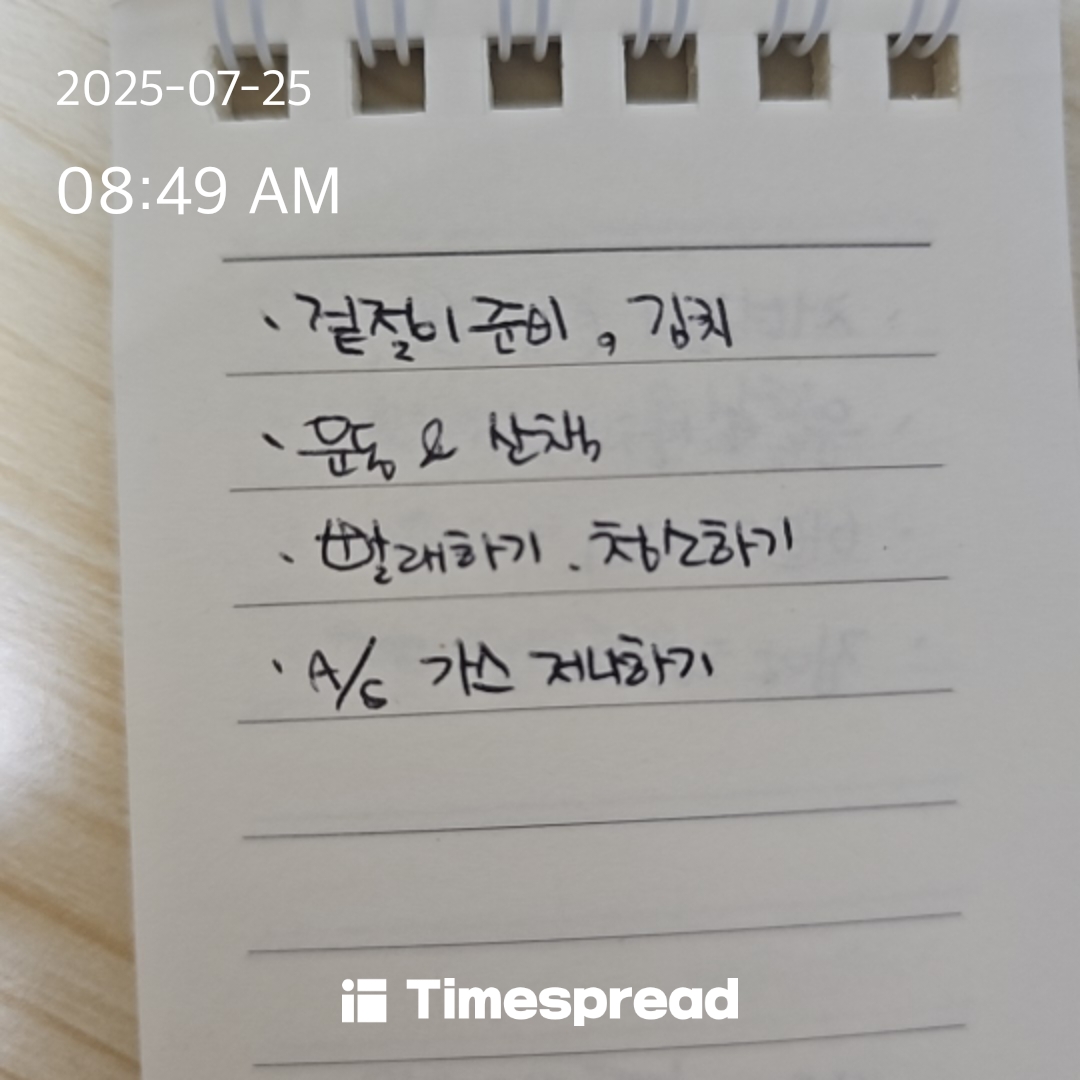 2025-07-25
08:49 AM
· 겉절이 준비, 김치
· 운동 & 산책
· 빨래하기. 청소하기
· A/S 가스 저나하기
Timespread